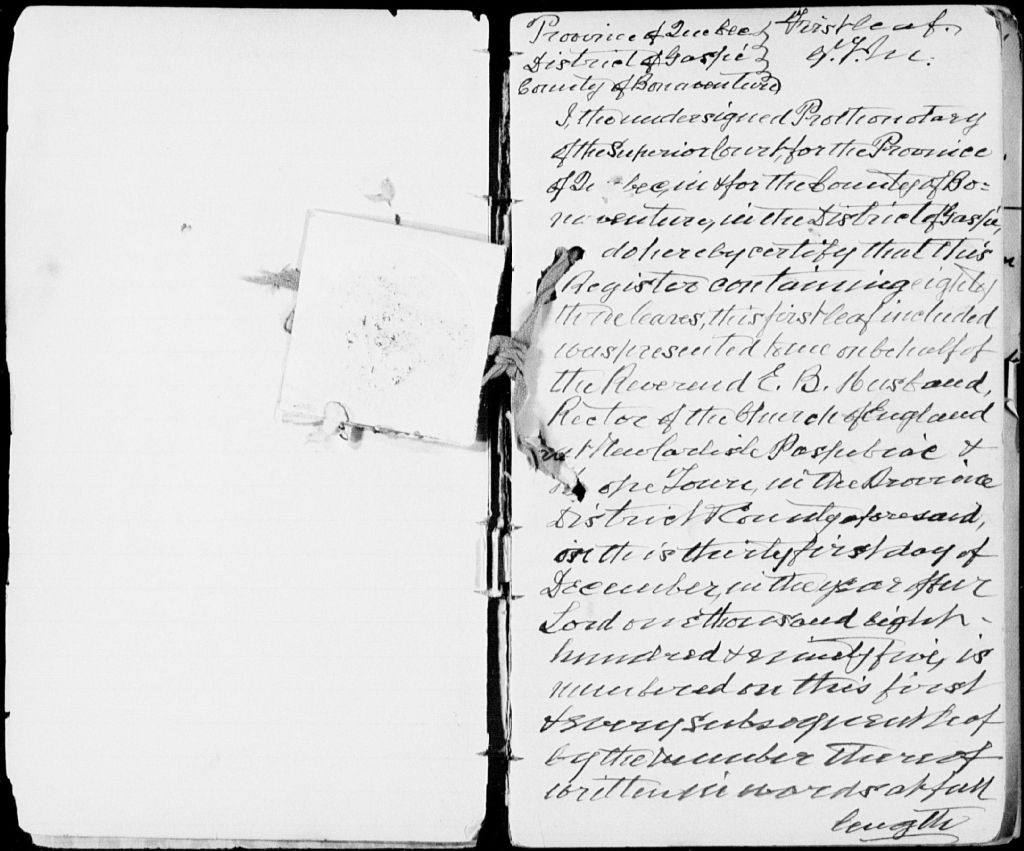 Province of Quebec } First leaf.
District of Gaspé } 
County of Bonaventure }
I, the undersigned Prothonotary
of the Superior Court, for the Province
of Quebec in & for the County of Bo=
naventure, in the District of Gaspé,
do hereby certify that this
Register containing eighty
three leaves, this first leaf included
was presented to me on behalf of
the Reverend E. B. Husband,
Rector of the Church of England
at New Carlisle Paspebiac &
Hope Town, in the Province
District & County aforesaid,
on this thirty first day of
December, in the year of our
Lord one thousand eight-
hundred & ninety five, is
numbered on this first
& every subsequent leaf
by the number thereof
written in words at full
length